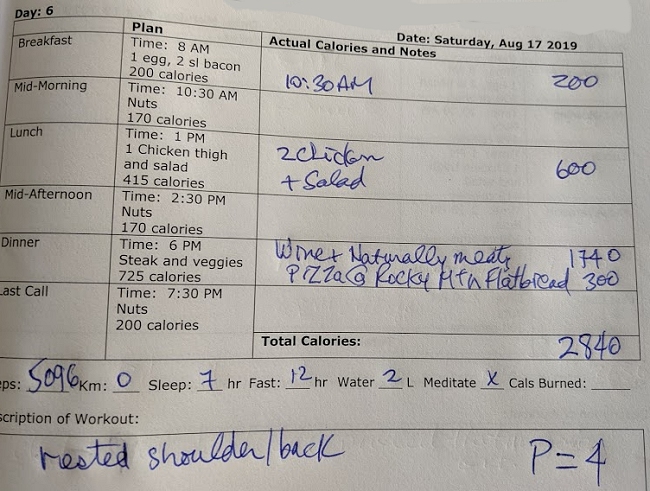 Day: 6
Plan
Date: Saturday, Aug 17 2019
Actual Calories and Notes
Breakfast
Time: 8 AM
1 egg, 2 sl bacon
200 calories
10:30 AM 200
Mid-Morning
Time: 10:30 AM
Nuts
170 calories
Lunch
Time: 1 PM
1 Chicken thigh
and salad
415 calories
2 chicken
+ Salad 600
Mid-Afternoon
Time: 2:30 PM
Nuts
170 calories
Dinner
Time: 6 PM
Steak and veggies
725 calories
Wine + Naturally meaty 1740
Pizza @ Rocky Mtn Flatbread 300
Last Call
Time: 7:30 PM
Nuts
200 calories
Total Calories: 2840
eps: 5096 Km: 0 Sleep: 7 hr Fast: 12 hr Water 2 L Meditate X Cals Burned:
scription of Workout:
rested shoulder/back P=4